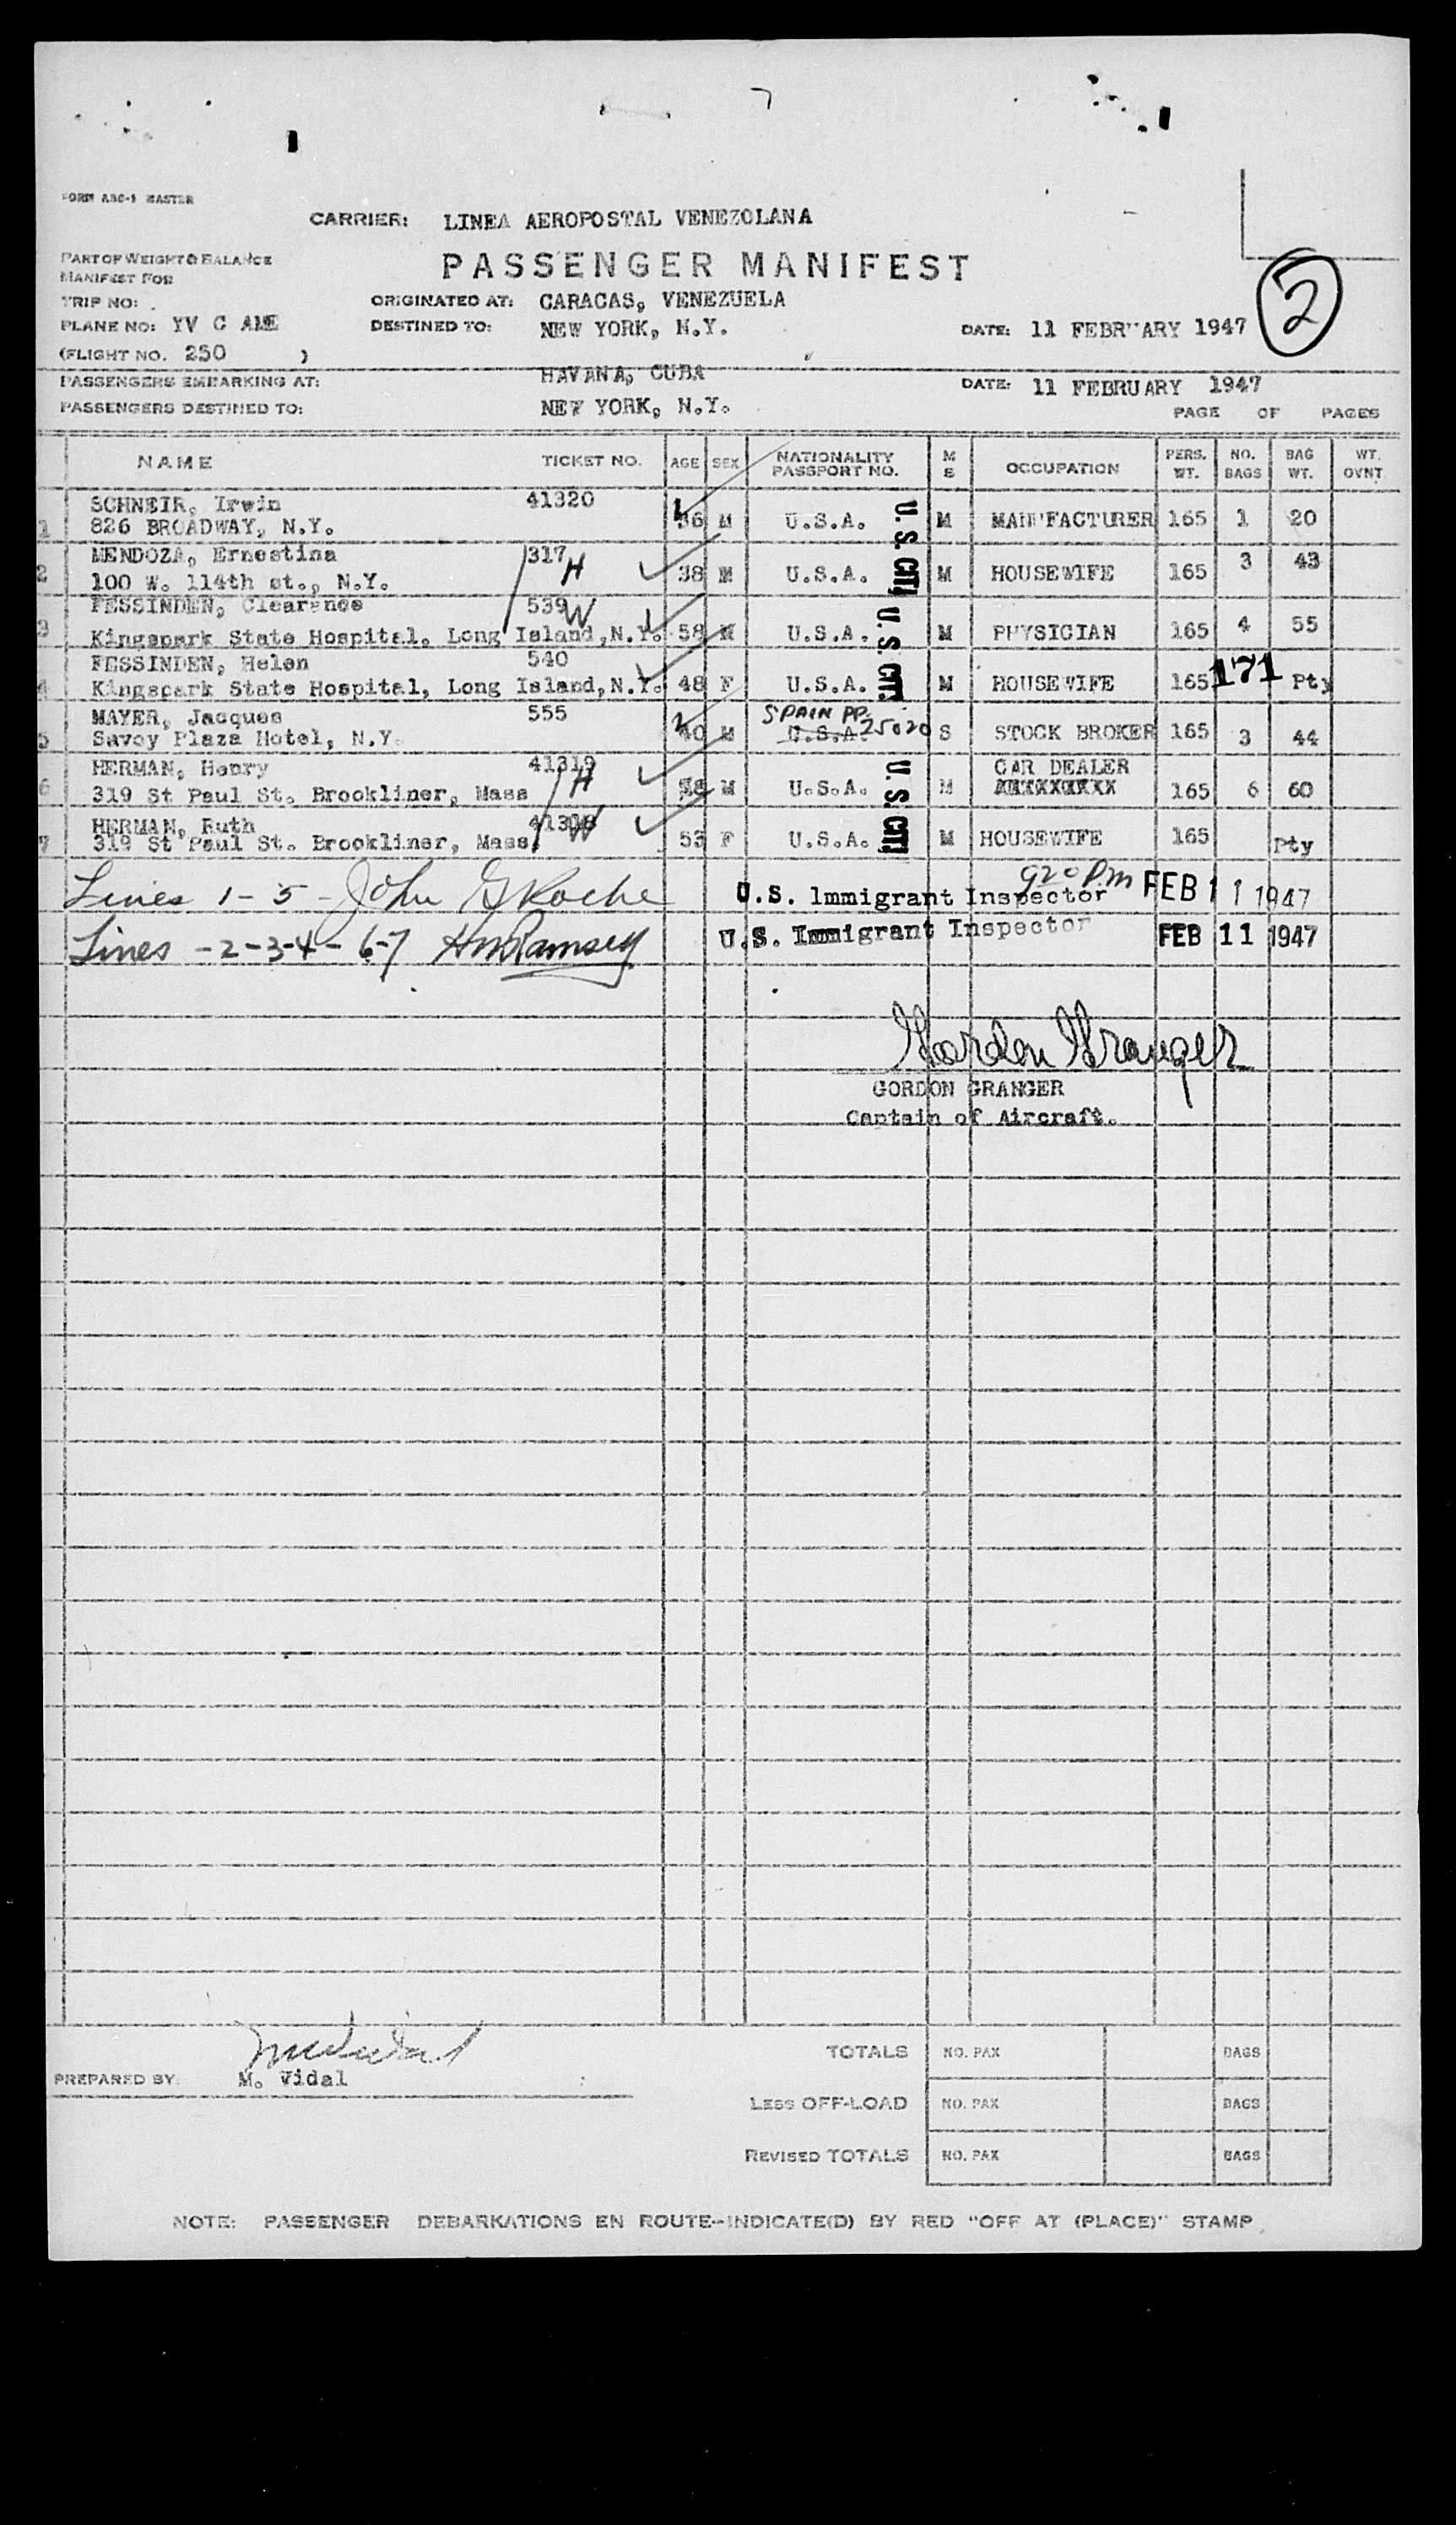 FORM ABC-1 MASTER
CARRIER: LINEA AEROPOSTAL VENEZOLANA
PART OF WEIGHT & BALANCE
MANIFEST FOR
PASSENGER MANIFEST
TRIP NO:
ORIGINATED AT: CARACAS, VENEZUELA
2
PLANE NO: YV C AME
DESTINED TO: NEW YORK, N.Y.
DATE: 11 FEBRUARY 1947
(FLIGHT NO. 250 )
PASSENGERS EMBARKING AT: HAVANA, CUBA
DATE: 11 FEBRUARY 1947
PASSENGERS DESTINED TO: NEW YORK, N.Y.
PAGE OF PAGES
NAME TICKET NO. AGE SEX NATIONALITY PASSPORT NO. M S OCCUPATION PERS. WT. NO. BAGS BAG WT. WT. OVNT
1 SCHNEIR, Irwin 41320
826 BROADWAY, N.Y. 36 M U.S.A. M MANUFACTURER 165 1 20
U.S. CIT.
2 MENDOZA, Ernestina 317 H
100 W. 114th st., N.Y. 38 M U.S.A. M HOUSEWIFE 165 3 43
3 FESSINDEN, Clearance 539 W
Kingspark State Hospital, Long Island, N.Y. 58 M U.S.A. M PHYSICIAN 165 4 55
U.S. CIT.
4 FESSINDEN, Helen 540
Kingspark State Hospital, Long Island, N.Y. 48 F U.S.A. M HOUSEWIFE 165 171 Pty
5 MAYER, Jacques 555 SPAIN PP. 25020
Savoy Plaza Hotel, N.Y. 40 M U.S.A. S STOCK BROKER 165 3 44
6 HERMAN, Henry 41319 H CAR DEALER
319 St Paul St. Brookliner, Mass 58 M U.S.A. M 165 6 60
U.S. CIT.
7 HERMAN, Ruth 41308 W
319 St Paul St. Brookliner, Mass. 53 F U.S.A. M HOUSEWIFE 165 Pty
920 Pm
Lines 1-5- John G Roche U.S. Immigrant Inspector FEB 11 1947
Lines -2-3-4-6-7 HMRamsey U.S. Immigrant Inspector FEB 11 1947
Gordon Granger
GORDON GRANGER
Captain of Aircraft.
MVidal
PREPARED BY: M. Vidal
TOTALS NO. PAX BAGS
LESS OFF-LOAD NO. PAX BAGS
REVISED TOTALS NO. PAX BAGS
NOTE: PASSENGER DEBARKATIONS EN ROUTE--INDICATE(D) BY RED "OFF AT (PLACE)" STAMP